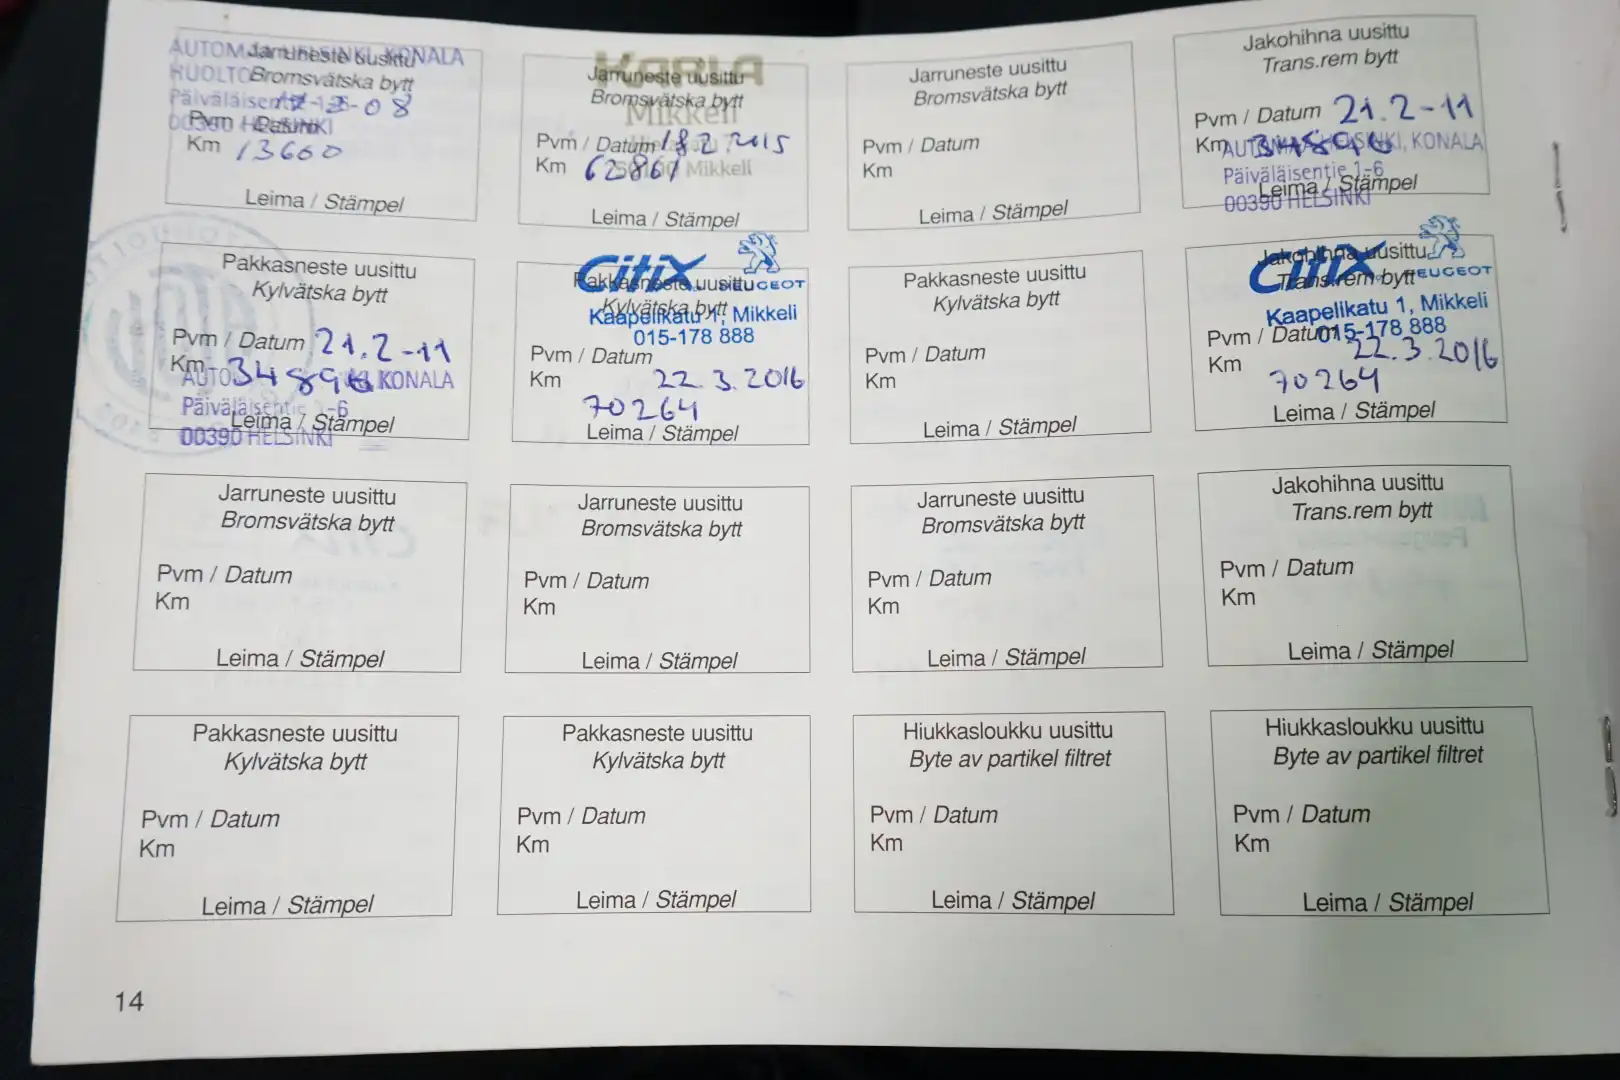 AUTOMAA HELSINKI, KONALA
Jarruneste uusittu
HUOLTO
Bromsvätska bytt
Päiväläisentie 1-6
-08
00390 HELSINKI
Pvm / Datum
Km 13660
Leima / Stämpel
Jarruneste uusittu
Bromsvätska bytt
Mikkeli
Pvm / Datum 18.2 2015
Km 62861
50100 Mikkeli
Leima / Stämpel
Jarruneste uusittu
Bromsvätska bytt
Pvm / Datum
Km
Leima / Stämpel
Jakohihna uusittu
Trans.rem bytt
Pvm / Datum 21.2-11
Km 34896
HELSINKI, KONALA
Päiväläisentie 1-6
Leima / Stämpel
00390 HELSINKI
Pakkasneste uusittu
Kylvätska bytt
Pvm / Datum 21.2-11
Km 34896
KONALA
Päiväläisentie 1-6
Leima / Stämpel
00390 HELSINKI
CitiX
Pakkasneste uusittu
PEUGEOT
Kylvätska bytt
Kaapelikatu 1, Mikkeli
015-178 888
Pvm / Datum
Km 22.3.2016
70264
Leima / Stämpel
Pakkasneste uusittu
Kylvätska bytt
Pvm / Datum
Km
Leima / Stämpel
Jakohihna uusittu
CitiX
Trans.rem bytt
PEUGEOT
Kaapelikatu 1, Mikkeli
015-178 888
Pvm / Datum
Km 22.3.2016
70264
Leima / Stämpel
Jarruneste uusittu
Bromsvätska bytt
Pvm / Datum
Km
Leima / Stämpel
Jarruneste uusittu
Bromsvätska bytt
Pvm / Datum
Km
Leima / Stämpel
Jarruneste uusittu
Bromsvätska bytt
Pvm / Datum
Km
Leima / Stämpel
Jakohihna uusittu
Trans.rem bytt
Pvm / Datum
Km
Leima / Stämpel
Pakkasneste uusittu
Kylvätska bytt
Pvm / Datum
Km
Leima / Stämpel
Pakkasneste uusittu
Kylvätska bytt
Pvm / Datum
Km
Leima / Stämpel
Hiukkasloukku uusittu
Byte av partikel filtret
Pvm / Datum
Km
Leima / Stämpel
Hiukkasloukku uusittu
Byte av partikel filtret
Pvm / Datum
Km
Leima / Stämpel
14